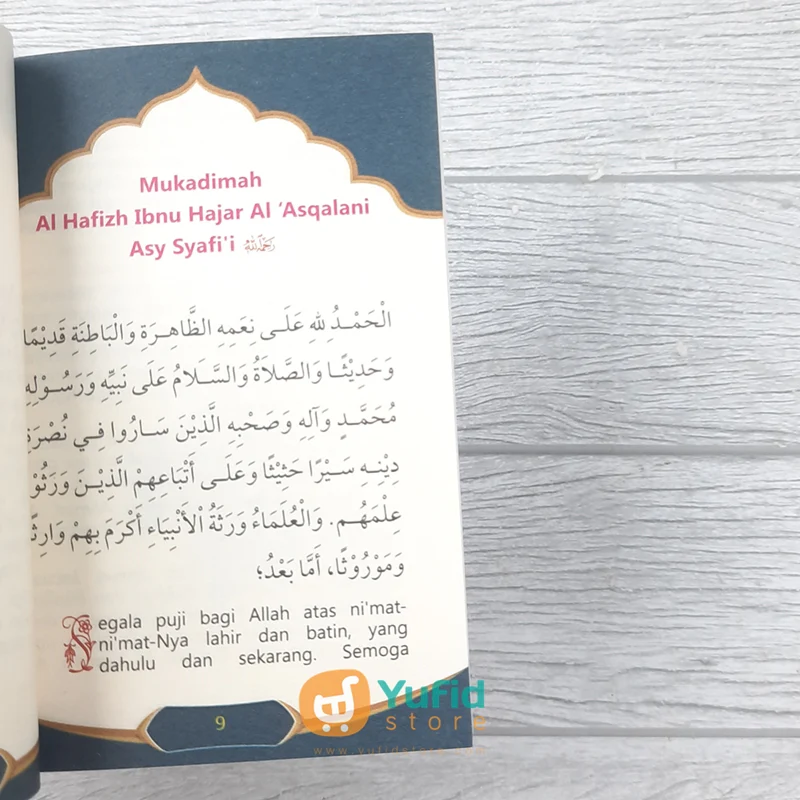 Mukadimah
Al Hafizh Ibnu Hajar Al 'Asqalani
Asy Syafi'i رحمه الله
الْحَمْـدُ لِلهِ عَلَـى نِعَمِهِ الظَّاهِـرَةِ وَالْبَاطِنَةِ قَدِيْمًا
وَحَدِيْثًـا وَالصَّلَاةُ وَالسَّـلَامُ عَلَى نَبِيِّهِ وَرَسُـوْلِهِ
مُحَمَّـدٍ وَآلِهِ وَصَحْبِهِ الَّذِيْنَ سَـارُوا فِـي نُصْرَةِ
دِيْنِـهِ سَـيْرًا حَثِيْثًا وَعَلَـى أَتْبَاعِهِمْ الَّذِيْـنَ وَرَثُوْ
عِلْمَهُـم. وَالْعُلَمَاءُ وَرَثَةُ الْأَنْبِيَاءِ أَكْرَمَ بِهِمْ وَارِثًا
وَمَوْرُوْثًا، أَمَّا بَعْدُ؛
Segala puji bagi Allah atas ni'mat-
ni'mat-Nya lahir dan batin, yang
dahulu dan sekarang. Semoga
9
Yufid
store
www.yufidstore.com